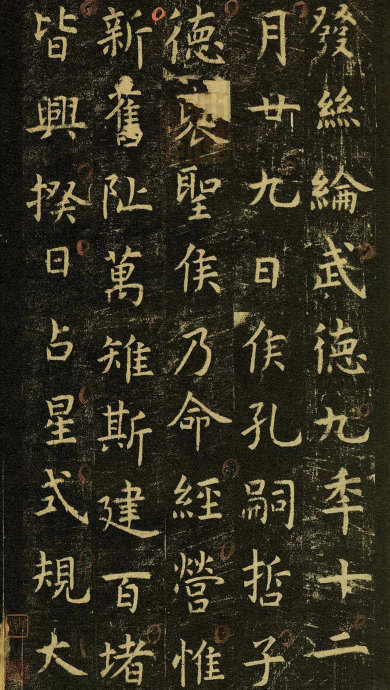 發絲綸武德九秊十二
月廿九日侯孔嗣哲子
德襃聖侯乃命經營惟
新舊阯萬雉斯建百堵
皆興揆日占星式規大